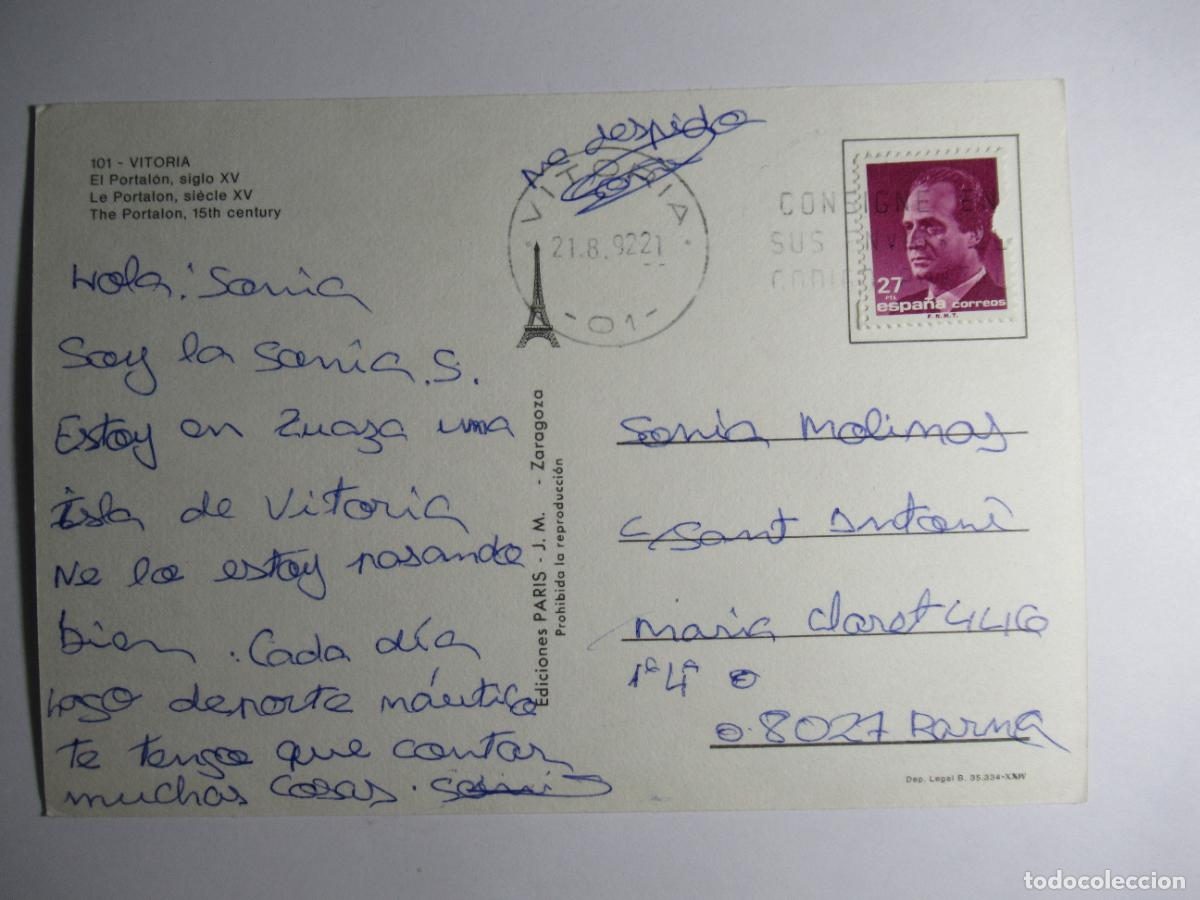 101 - VITORIA
El Portalón, siglo XV
Le Portalon, siècle XV
The Portalon, 15th century
Hola: Sonia
Soy la Sonia. S.
Estoy en Zuaza una
isla de Vitoria
Me lo estoy pasando
bien. Cada día
hago deporte náutico
te tengo que contar
muchas cosas.
me despido
VITORIA
21.8.92 21
- 01 -
CONSIGNE EN
SUS
27
PTS
españa correos
F.N.M.T.
Ediciones PARIS - J. M. - Zaragoza
Prohibida la reproducción
Sonia Molinos
C/ Sant Antoni
Maria Claret 446
1ª 4ª
08027 Barna
Dep. Legal B. 35.334-XXIV
todocoleccion